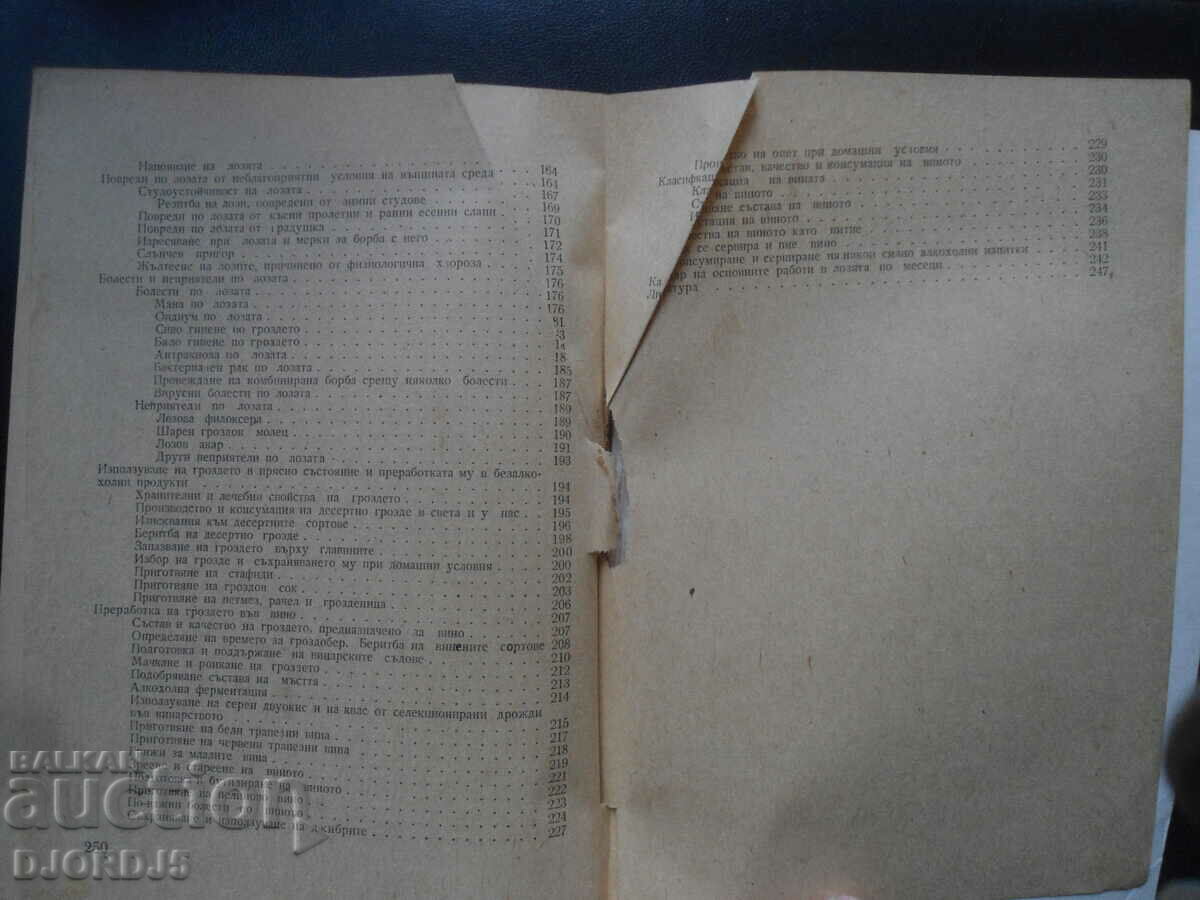 Напояване на лозята 164
Повреди по лозата от неблагоприятни условия на външната среда 164
Студоустойчивост на лозата 167
Резитба на лози, повредени от зимни студове 169
Повреди по лозата от късни пролетни и ранни есенни слани 170
Повреди по лозата от градушка 171
Изресяване при лозата и мерки за борба с него 172
Слънчев пригор 174
Жълтеене на лозите, причинено от физиологична хлороза 175
Болести и неприятели по лозата 176
Болести по лозата 176
Мана по лозата 176
Оидиум по лозата 81
Сиво гниене по гроздето 3
Бяло гниене по гроздето
Антракноза по лозата 18
Бактериален рак по лозата 185
Провеждане на комбинирана борба срещу няколко болести 187
Вирусни болести по лозата 187
Неприятели по лозата 189
Лозова филоксера 189
Шарен гроздов молец 190
Лозов акар 191
Други неприятели по лозата 193
Използуване на гроздето в прясно състояние и преработката му в безалко-
холни продукти 194
Хранителни и лечебни свойства на гроздето 194
Производство и консумация на десертно грозде в света и у нас 195
Изисквания към десертните сортове 196
Беритба на десертно грозде 198
Запазване на гроздето върху главините 200
Избор на грозде и съхраняването му при домашни условия 200
Приготвяне на стафиди 202
Приготвяне на гроздов сок 203
Приготвяне на петмез, рачел и грозденица 206
Преработка на гроздето във вино 207
Състав и качество на гроздето, предназначено за вино 207
Определяне на времето за гроздобер. Беритба на винените сортове 208
Подготовка и поддържане на винарските съдове 210
Мачкане и ронкане на гроздето 212
Подобряване състава на мъстта 213
Алкохолна ферментация 214
Използуване на серен двуокис и на квас от селекционирани дрожди
във винарството 215
Приготвяне на бели трапезни вина 217
Приготвяне на червени трапезни вина 218
Грижи за младите вина 219
Зреене и стареене на виното 221
бутилиране на виното 222
Приготвяне на вино 223
По-важни болести по виното 224
Съхраняване и използуване на джибрите 227
250
Про во на оцет при домашни условия 229
Класификац став, качество и консумация на виното 230
Кла кация на вината 230
С на виното 231
ване състава на виното 233
стация на виното 234
ества на виното като питие 236
се сервира и пие вино 238
онсумиране и сервиране на някои силно алкохолни напитки 241
Ка ар на основните работи в лозята по месеци 242
Ли тура 247
BALKAN
auction
DJORDJ5